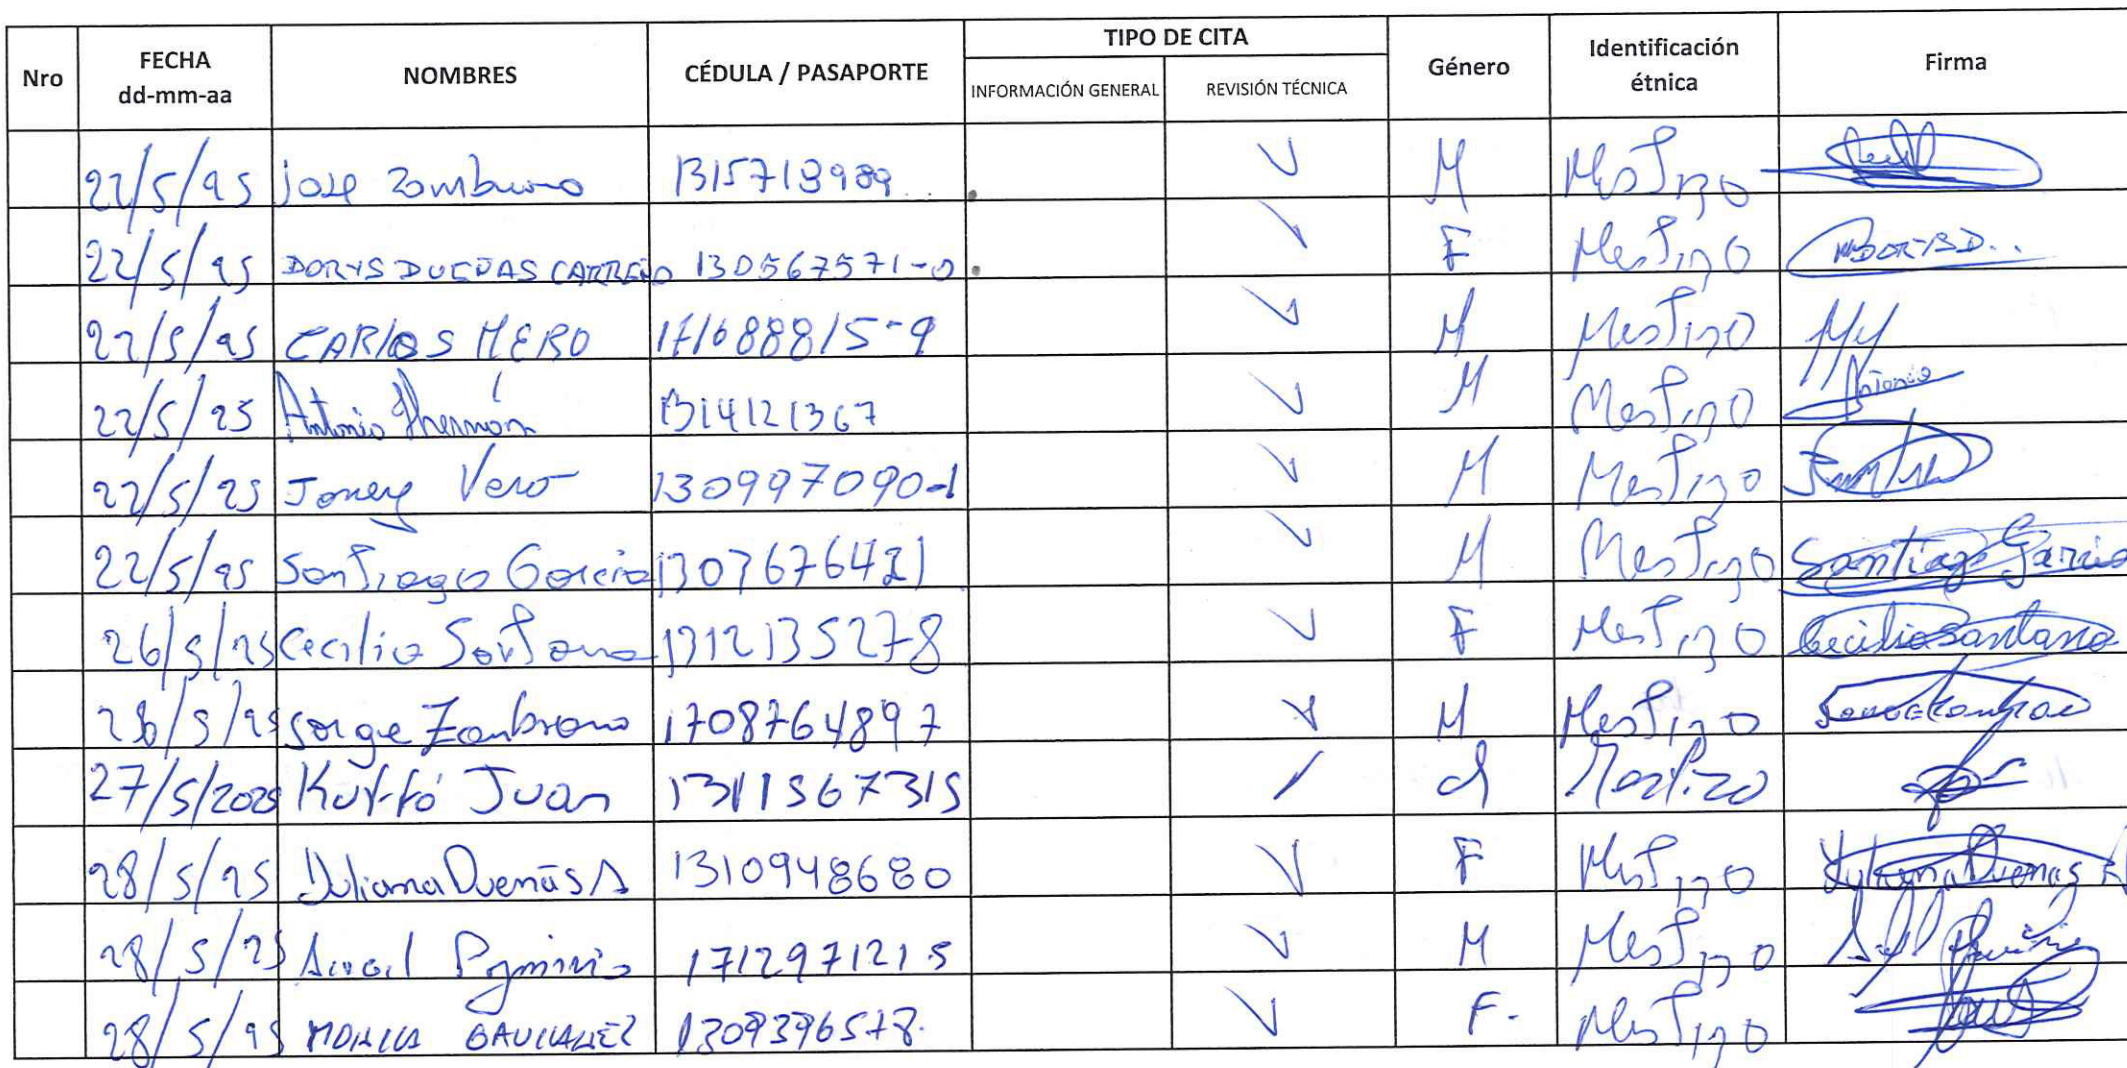 Nro FECHA dd-mm-aa NOMBRES CÉDULA / PASAPORTE TIPO DE CITA INFORMACIÓN GENERAL REVISIÓN TÉCNICA Género Identificación étnica Firma
22/5/25 jose Zambrano 1315718989 M Mestizo
22/5/25 DORYS DUEÑAS CARREÑO 130567571-0 F Mestizo DORYS D..
22/5/25 CARLOS MERO 171688815-9 M Mestizo
22/5/25 Antonio 1314121367 M Mestizo Antonio
22/5/25 Vera 130997090-1 M Mestizo
22/5/25 Santiago Garcia 1303676421 M Mestizo Santiago Garcia
26/5/25 Cecilia Santana 1312135278 F Mestizo Cecilia Santana
26/5/25 Jorge Zambrano 1708764897 M Mestizo
27/5/2025 Juan 1311567315 M Mestizo
28/5/25 Yuliana Dueñas A 1310948680 F Mestizo Yuliana Duenas A
28/5/25 1712971215 M Mestizo
28/5/25 MONICA 1309396578. F. Mestizo